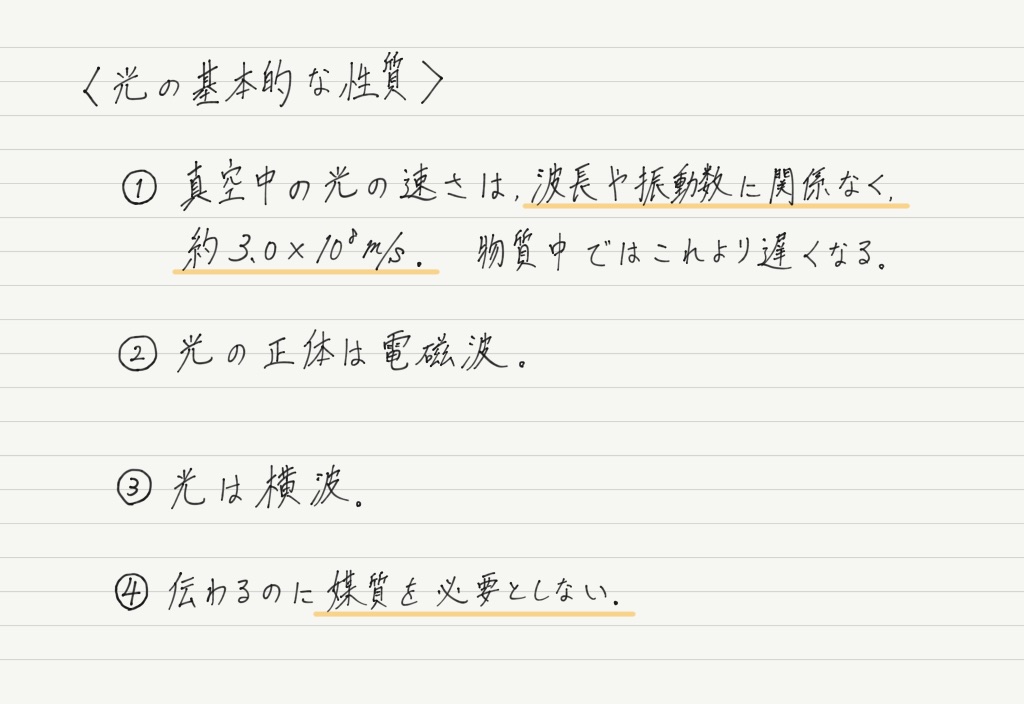 〈光の基本的な性質〉
① 真空中の光の速さは,波長や振動数に関係なく,
約3.0×10⁸m/s. 物質中ではこれより遅くなる。
② 光の正体は電磁波。
③ 光は横波。
④ 伝わるのに媒質を必要としない.